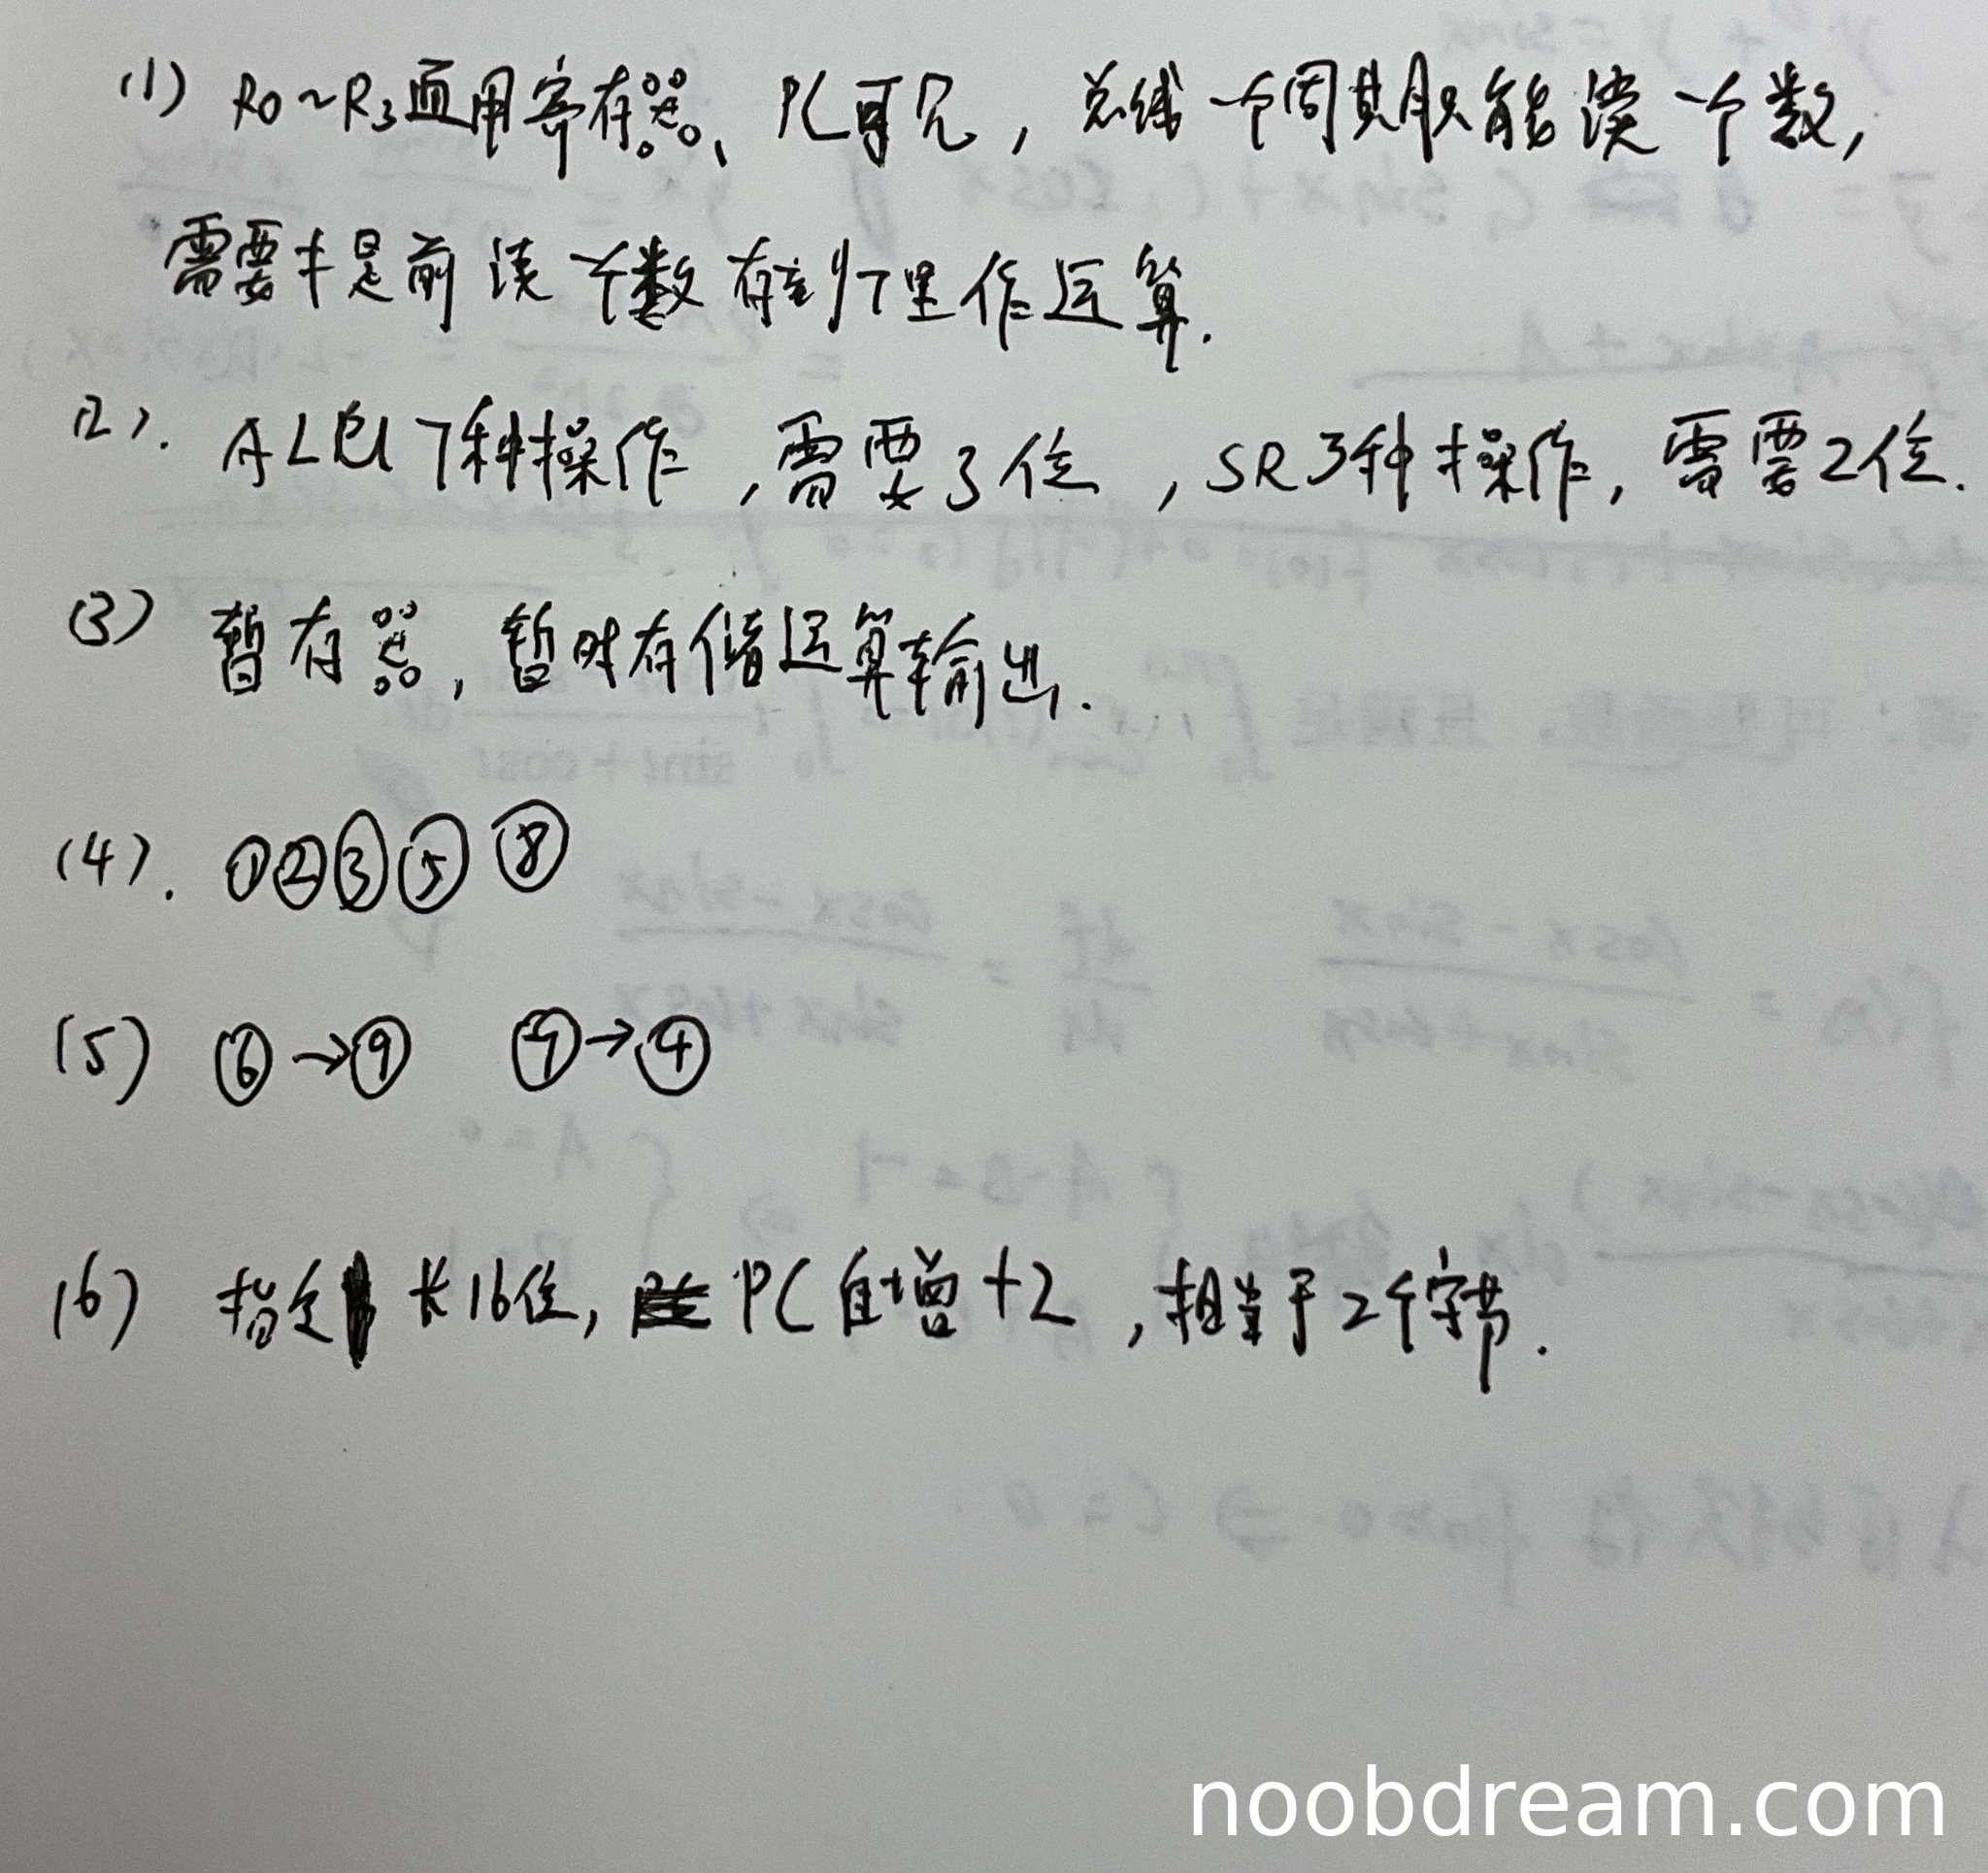 (1) R0~R3通用寄存器、PC可见，总线一个周期只能读一个数，
需要提前读个数存到T里作运算.
(2). ALU 7种操作，需要3位，SR3种操作，需要2位.
(3) 暂存器，暂时存储运算输出.
(4). ①②③⑤⑧
(5) ⑥→⑨ ④
(6) 指令长16位，PC自增+2，相当于2个字节.
noobdream.com